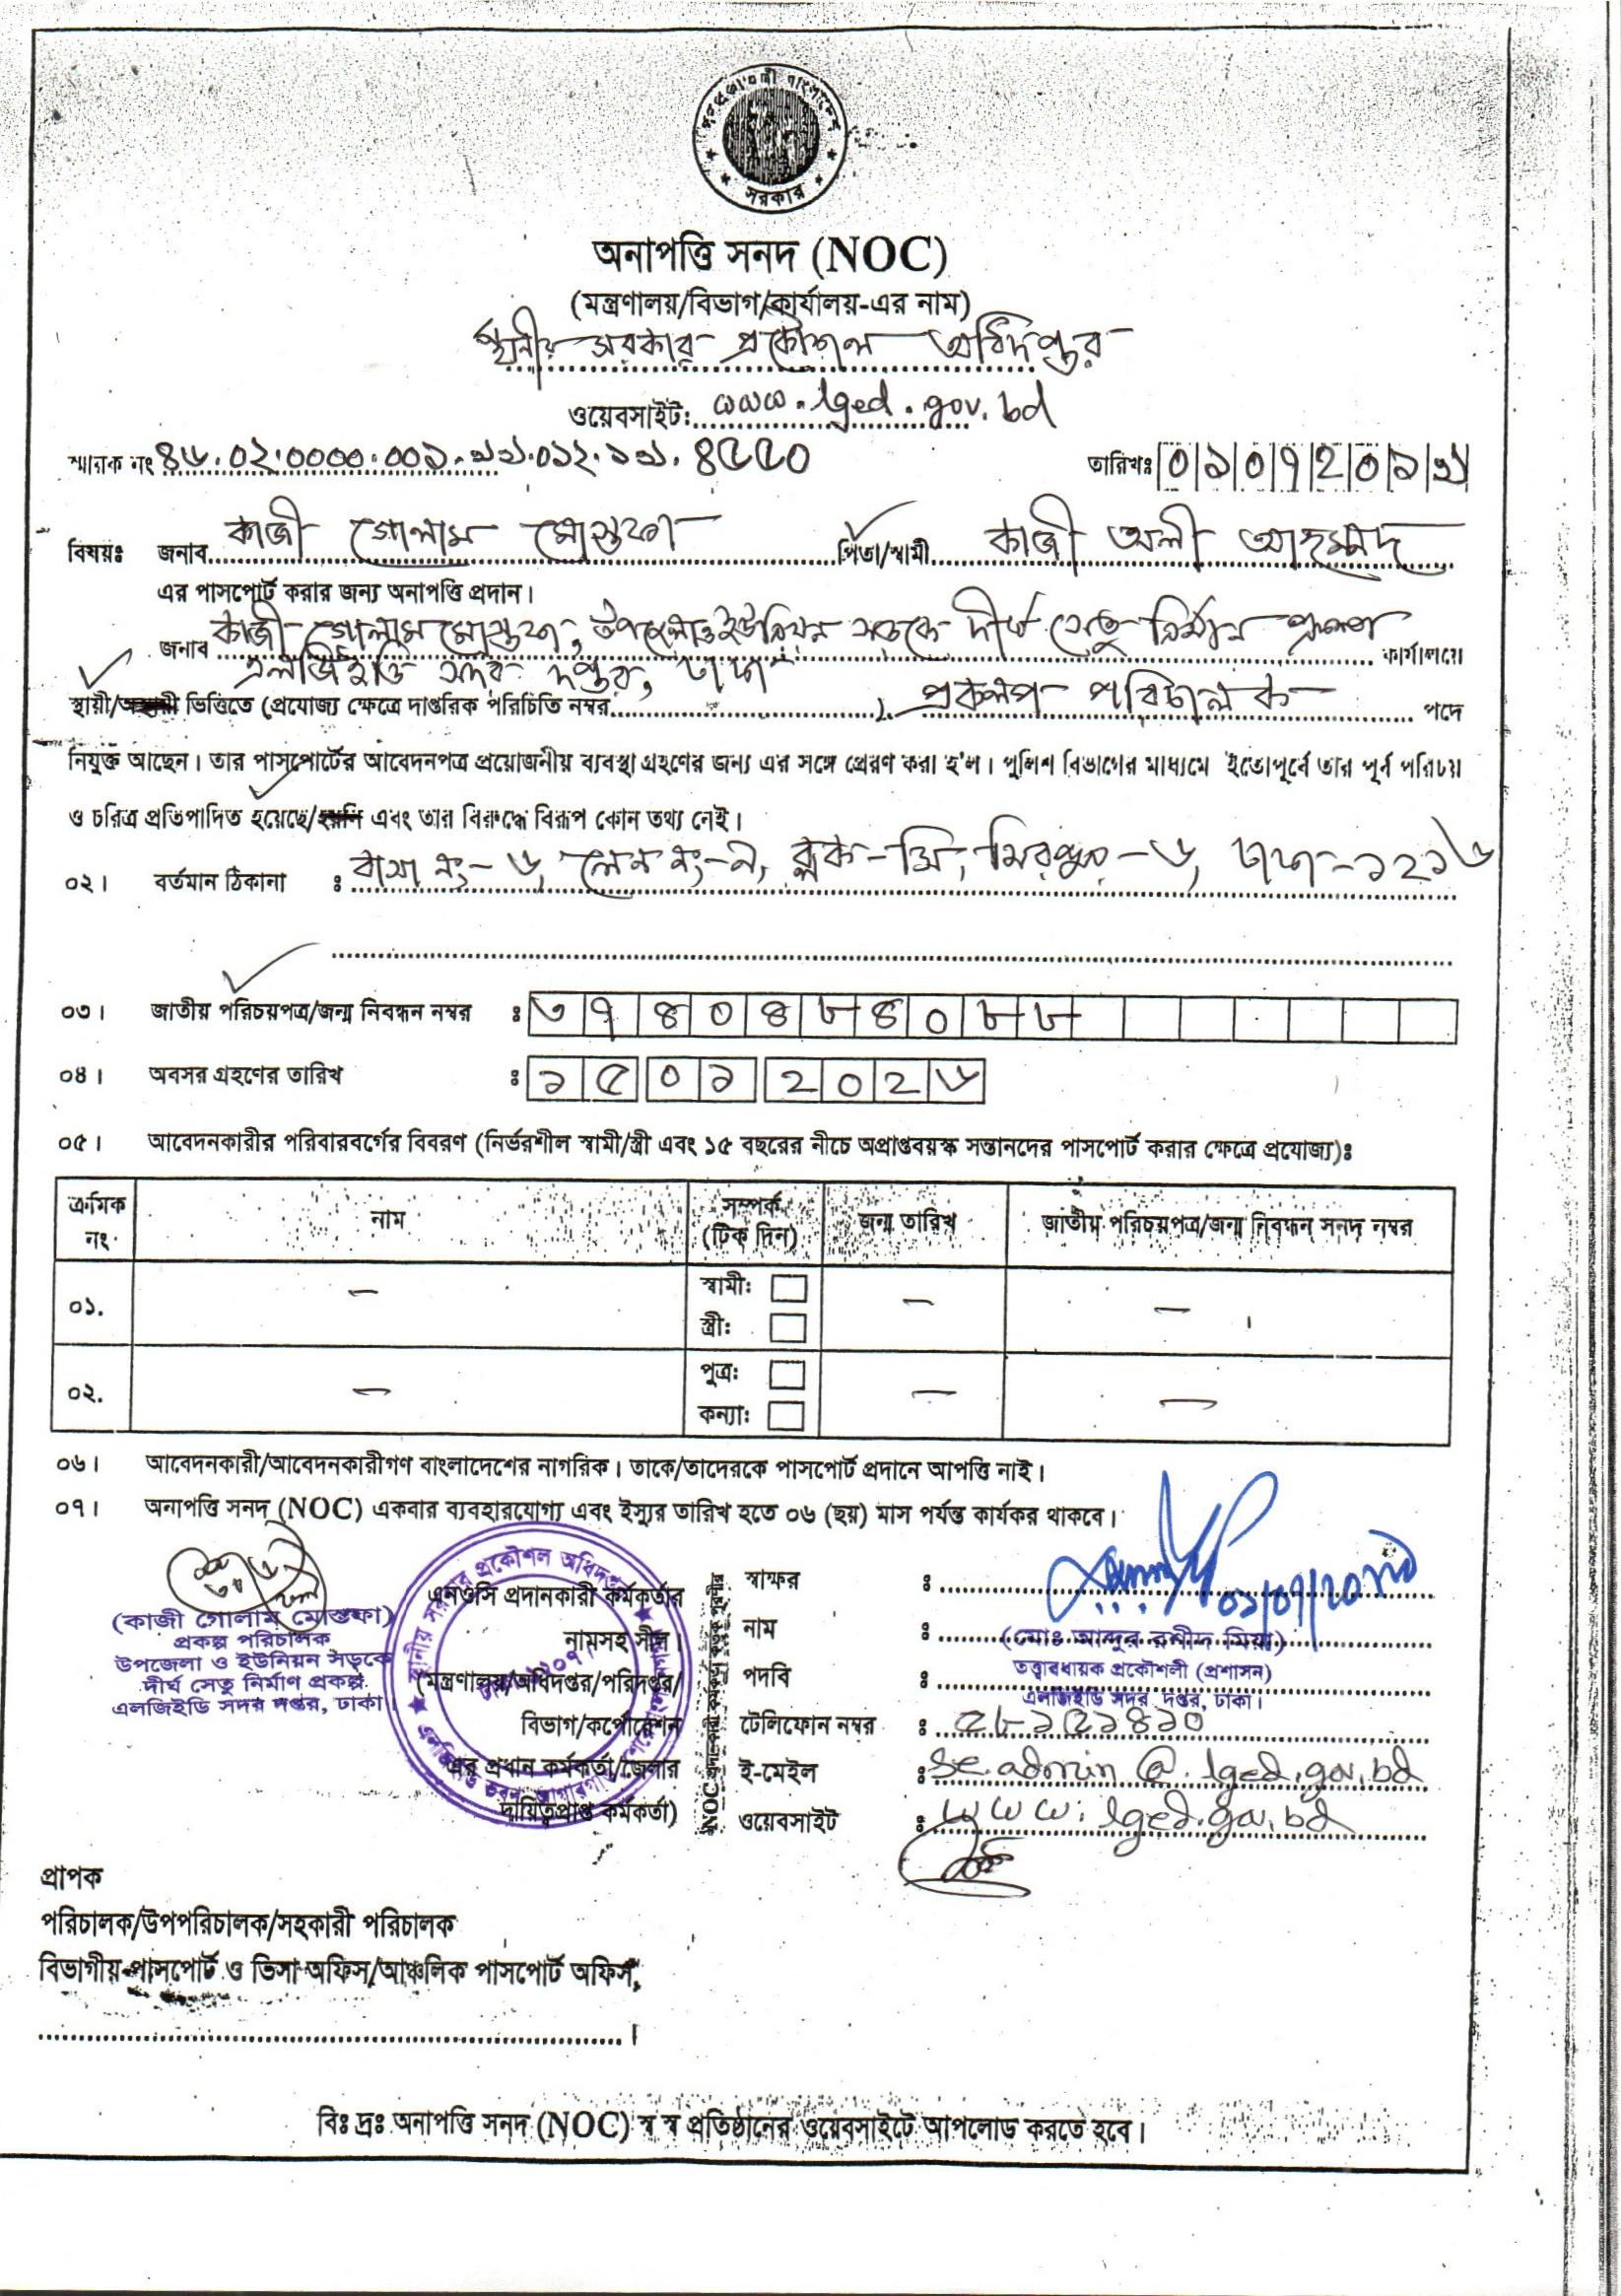 গণপ্রজাতন্ত্রী বাংলাদেশ
সরকার
অনাপত্তি সনদ (NOC)
(মন্ত্রণালয়/বিভাগ/কার্যালয়-এর নাম)
স্থানীয় সরকার প্রকৌশল অধিদপ্তর
ওয়েবসাইট: www.lged.gov.bd
স্মারক নং ৪৬.০২.০০০০.০০১.১১.০১২.১৯.৪৫৫০ তারিখঃ ০১০৭২০১৯
বিষয়ঃ জনাব কাজী গোলাম মোস্তফা পিতা/স্বামী কাজী অলী আহম্মদ
এর পাসপোর্ট করার জন্য অনাপত্তি প্রদান।
জনাব কাজী গোলাম মোস্তফা, উপজেলা ও ইউনিয়ন সড়কে দীর্ঘ সেতু নির্মান প্রকল্প
এলজিইডি সদর দপ্তর, ঢাকা কার্যালয়ে
স্থায়ী/অস্থায়ী ভিত্তিতে (প্রযোজ্য ক্ষেত্রে দাপ্তরিক পরিচিতি নম্বর) প্রকল্প পরিচালক পদে
নিযুক্ত আছেন। তার পাসপোর্টের আবেদনপত্র প্রয়োজনীয় ব্যবস্থা গ্রহণের জন্য এর সঙ্গে প্রেরণ করা হ'ল। পুলিশ বিভাগের মাধ্যমে ইতোপূর্বে তার পূর্ব পরিচয়
ও চরিত্র প্রতিপাদিত হয়েছে/হয়নি এবং তার বিরুদ্ধে বিরূপ কোন তথ্য নেই।
০২। বর্তমান ঠিকানা : বাসা নং-৬, লেন নং-৯, ব্লক-সি, মিরপুর-৬, ঢাকা-১২১৬
০৩। জাতীয় পরিচয়পত্র/জন্ম নিবন্ধন নম্বর : ৩৭৪০৪৮৪০৮৮
০৪। অবসর গ্রহণের তারিখ : ১৫০১২০২৬
০৫। আবেদনকারীর পরিবারবর্গের বিবরণ (নির্ভরশীল স্বামী/স্ত্রী এবং ১৫ বছরের নীচে অপ্রাপ্তবয়স্ক সন্তানদের পাসপোর্ট করার ক্ষেত্রে প্রযোজ্য)ঃ
ক্রমিক নং নাম সম্পর্ক (টিক দিন) জন্ম তারিখ জাতীয় পরিচয়পত্র/জন্ম নিবন্ধন সনদ নম্বর
০১. – স্বামী: – –
স্ত্রী:
০২. – পুত্র: – –
কন্যা:
০৬। আবেদনকারী/আবেদনকারীগণ বাংলাদেশের নাগরিক। তাকে/তাদেরকে পাসপোর্ট প্রদানে আপত্তি নাই।
০৭। অনাপত্তি সনদ (NOC) একবার ব্যবহারযোগ্য এবং ইস্যুর তারিখ হতে ০৬ (ছয়) মাস পর্যন্ত কার্যকর থাকবে।
(কাজী গোলাম মোস্তফা)
প্রকল্প পরিচালক
উপজেলা ও ইউনিয়ন সড়কে
দীর্ঘ সেতু নির্মাণ প্রকল্প
এলজিইডি সদর দপ্তর, ঢাকা।
এনওসি প্রদানকারী কর্মকর্তার
নামসহ সীল।
(মন্ত্রণালয়/অধিদপ্তর/পরিদপ্তর/
বিভাগ/কর্পোরেশন
এর প্রধান কর্মকর্তা/জেলার
দায়িত্বপ্রাপ্ত কর্মকর্তা)
স্বাক্ষর : ০১/০৭/২০১৯
নাম : (মোঃ আব্দুর রশীদ মিয়া)
পদবি : তত্ত্বাবধায়ক প্রকৌশলী (প্রশাসন)
এলজিইডি সদর দপ্তর, ঢাকা।
টেলিফোন নম্বর : ৫৮১৫১৪১০
ই-মেইল : se.admin@lged.gov.bd
ওয়েবসাইট : www.lged.gov.bd
প্রাপক
পরিচালক/উপপরিচালক/সহকারী পরিচালক
বিভাগীয় পাসপোর্ট ও ভিসা অফিস/আঞ্চলিক পাসপোর্ট অফিস,
বিঃ দ্রঃ অনাপত্তি সনদ (NOC) স্ব স্ব প্রতিষ্ঠানের ওয়েবসাইটে আপলোড করতে হবে।